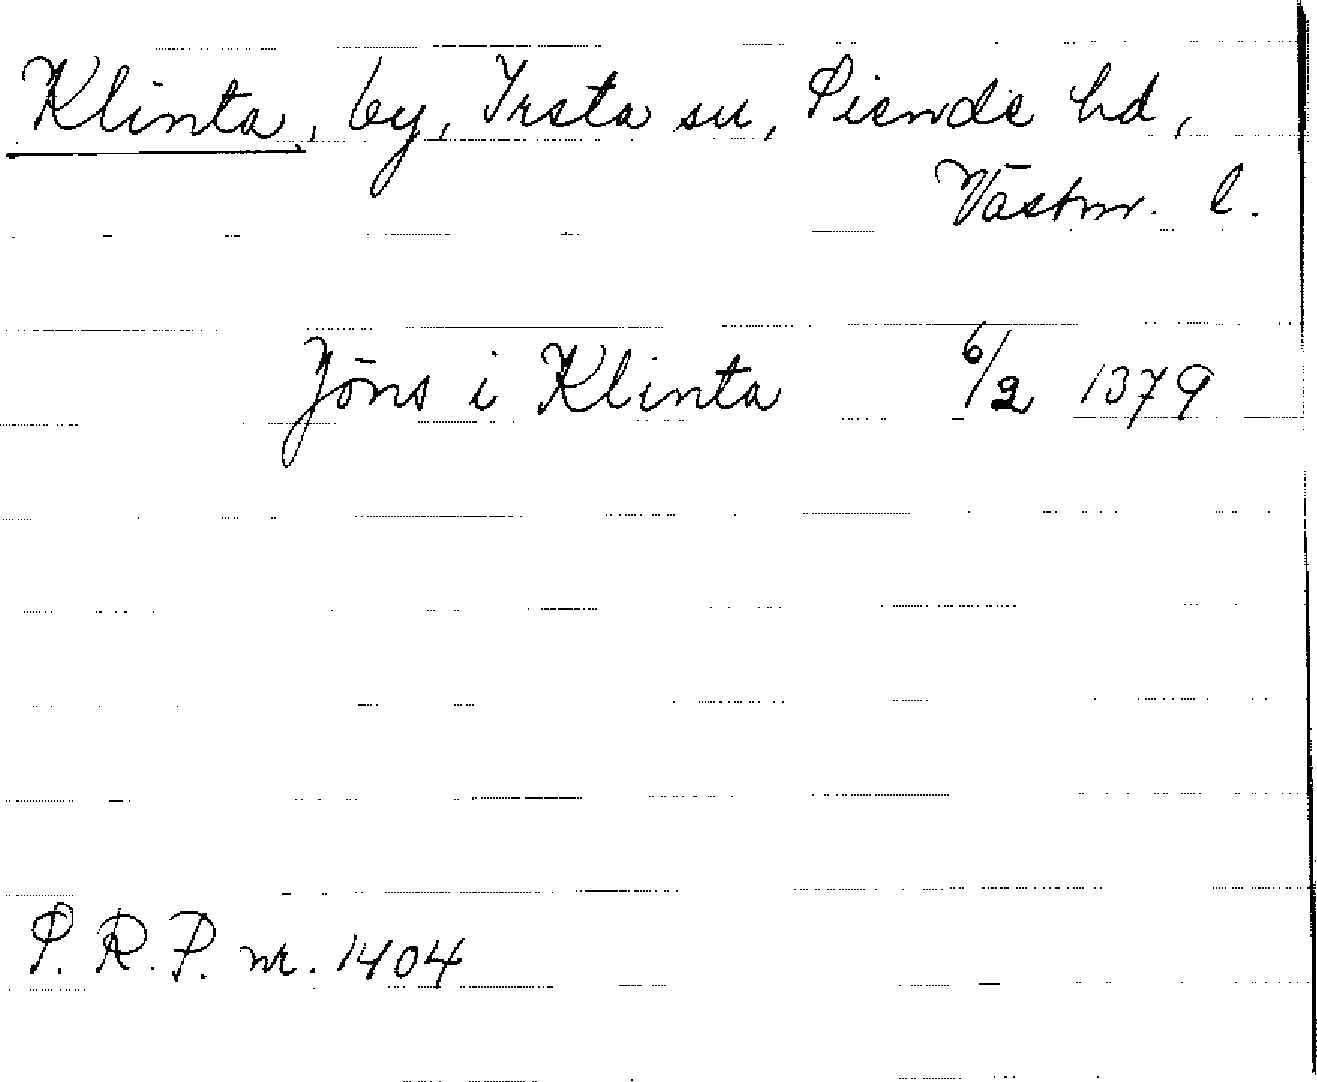 Klinta, by, Irsta sn, Siende hd,
Västm. l.
Jöns i Klinta 6/2 1379
S. R. P. nr. 1404